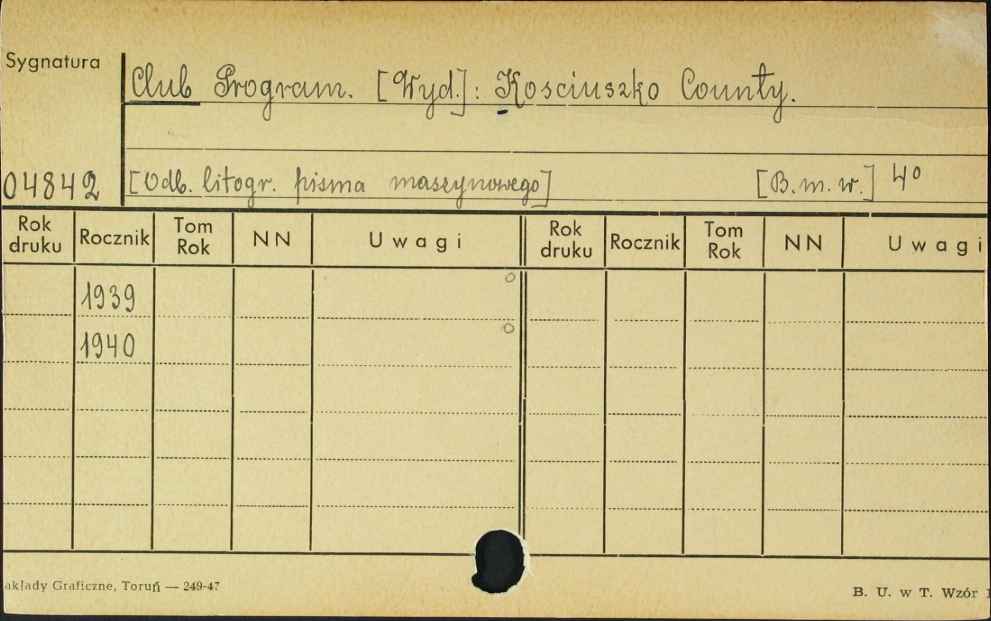 Sygnatura
Club Program. [Wyd.]: Kosciuszko County.
04842 [Odb. litogr. pisma maszynowego] [B. m. w.] 4o
Rok druku Rocznik Tom Rok NN Uwagi Rok druku Rocznik Tom Rok NN Uwagi
1939 o
1940 o
akłady Graficzne, Toruń — 249-47 B. U. w T. Wzór 1